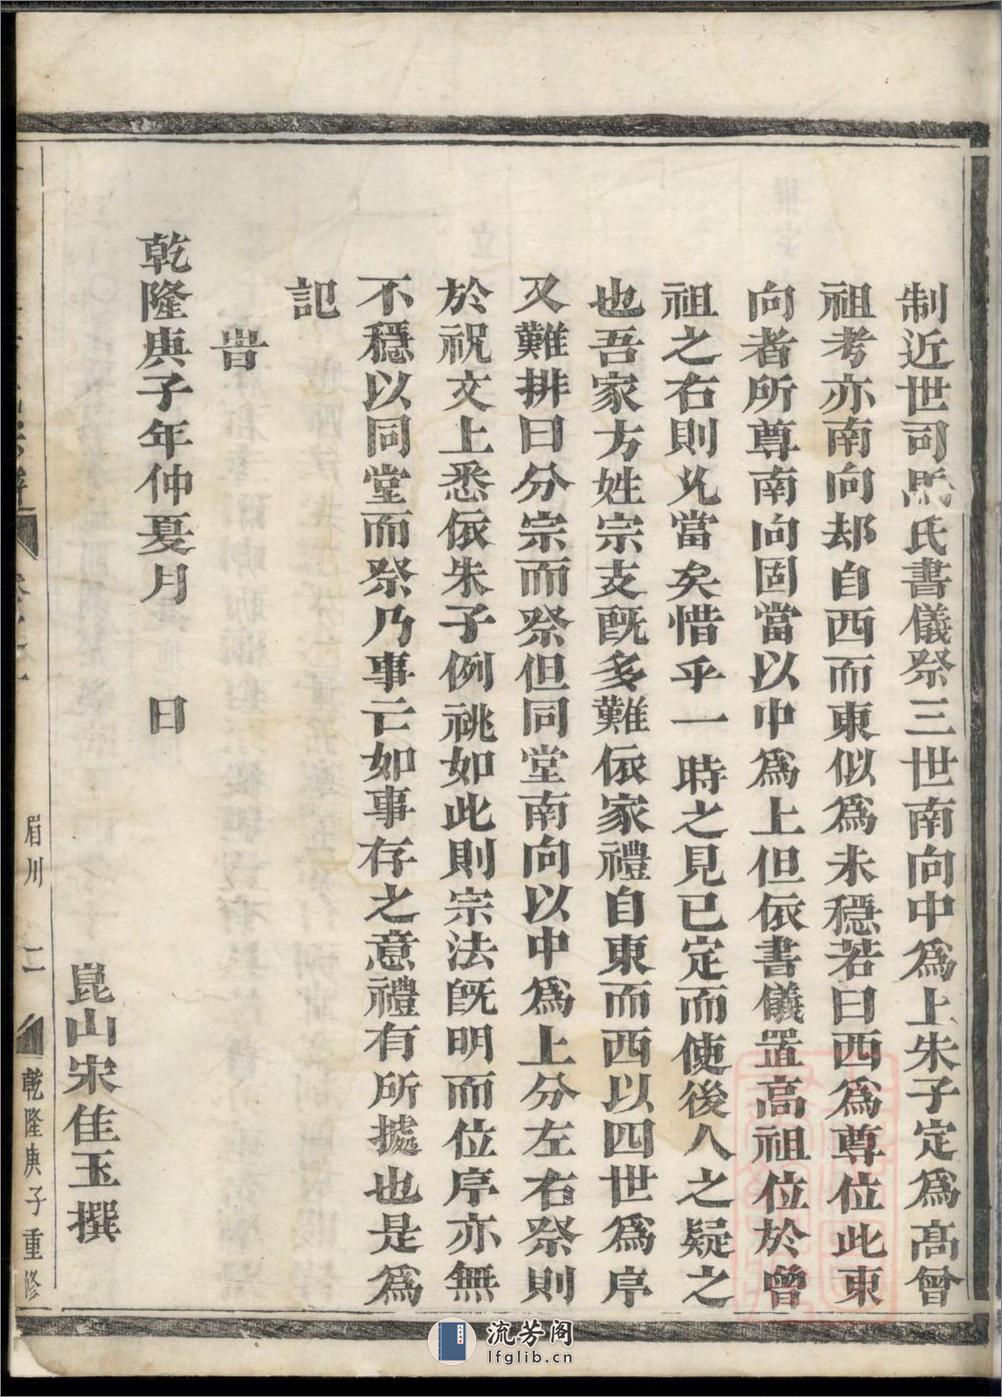 制近世司馬氏書儀祭三世南向中為上朱子定為高曾
祖考亦南向却自西而東似為未穩若曰西為尊位此東
向者所尊南向固當以中為上但依書儀置高祖位於曾
祖之右則允當矣惜乎一時之見已定而使後人之疑之
也吾家方姓宗支既多難依家禮自東而西以四世為序
又難排曰分宗而祭但同堂南向以中為上分左右祭則
於祝文上悉依朱子例祧如此則宗法既明而位序亦無
不穩以同堂而祭乃事亡如事存之意禮有所據也是為
記
旹
乾隆庚子年仲夏月 日
崑山宋佳玉撰
眉川 二 乾隆庚子重修
流芳阁
lfglib.cn